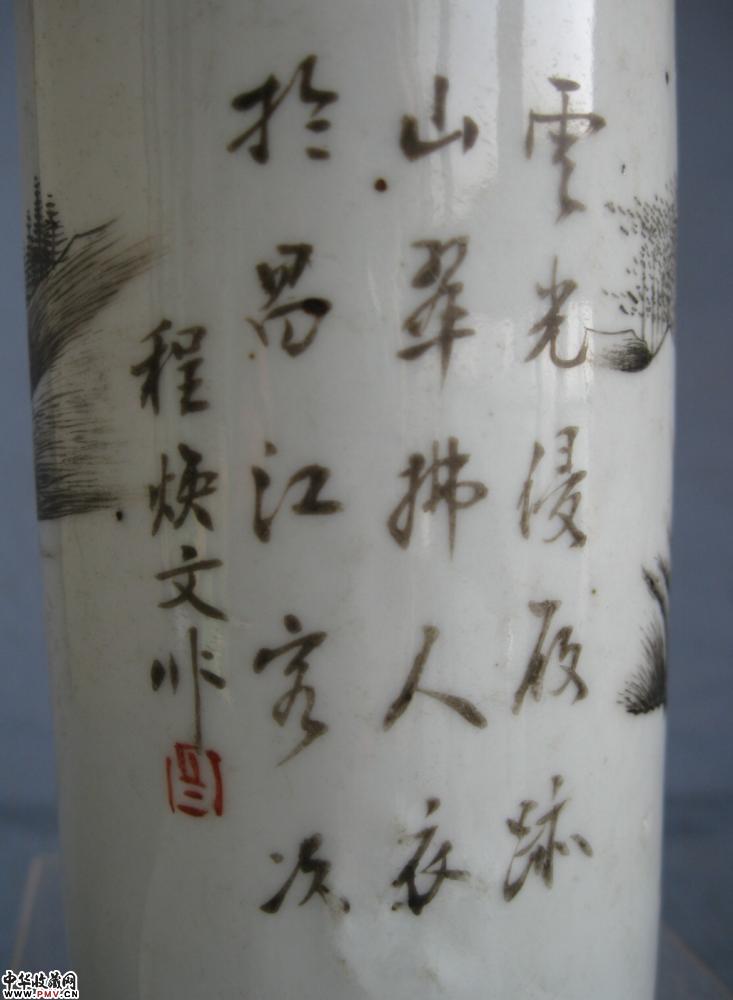 雲光侵履跡
山翠拂人衣
扵昌江客次
程焕文作
中华收藏网
WWW.PMV.CN